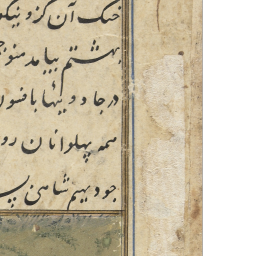 خنک آن کزو نیکو
بهشتم بیامد منوچ
در جادوییها بافسون
همه پهلوانان رو
چو دیهیم شاهی بس